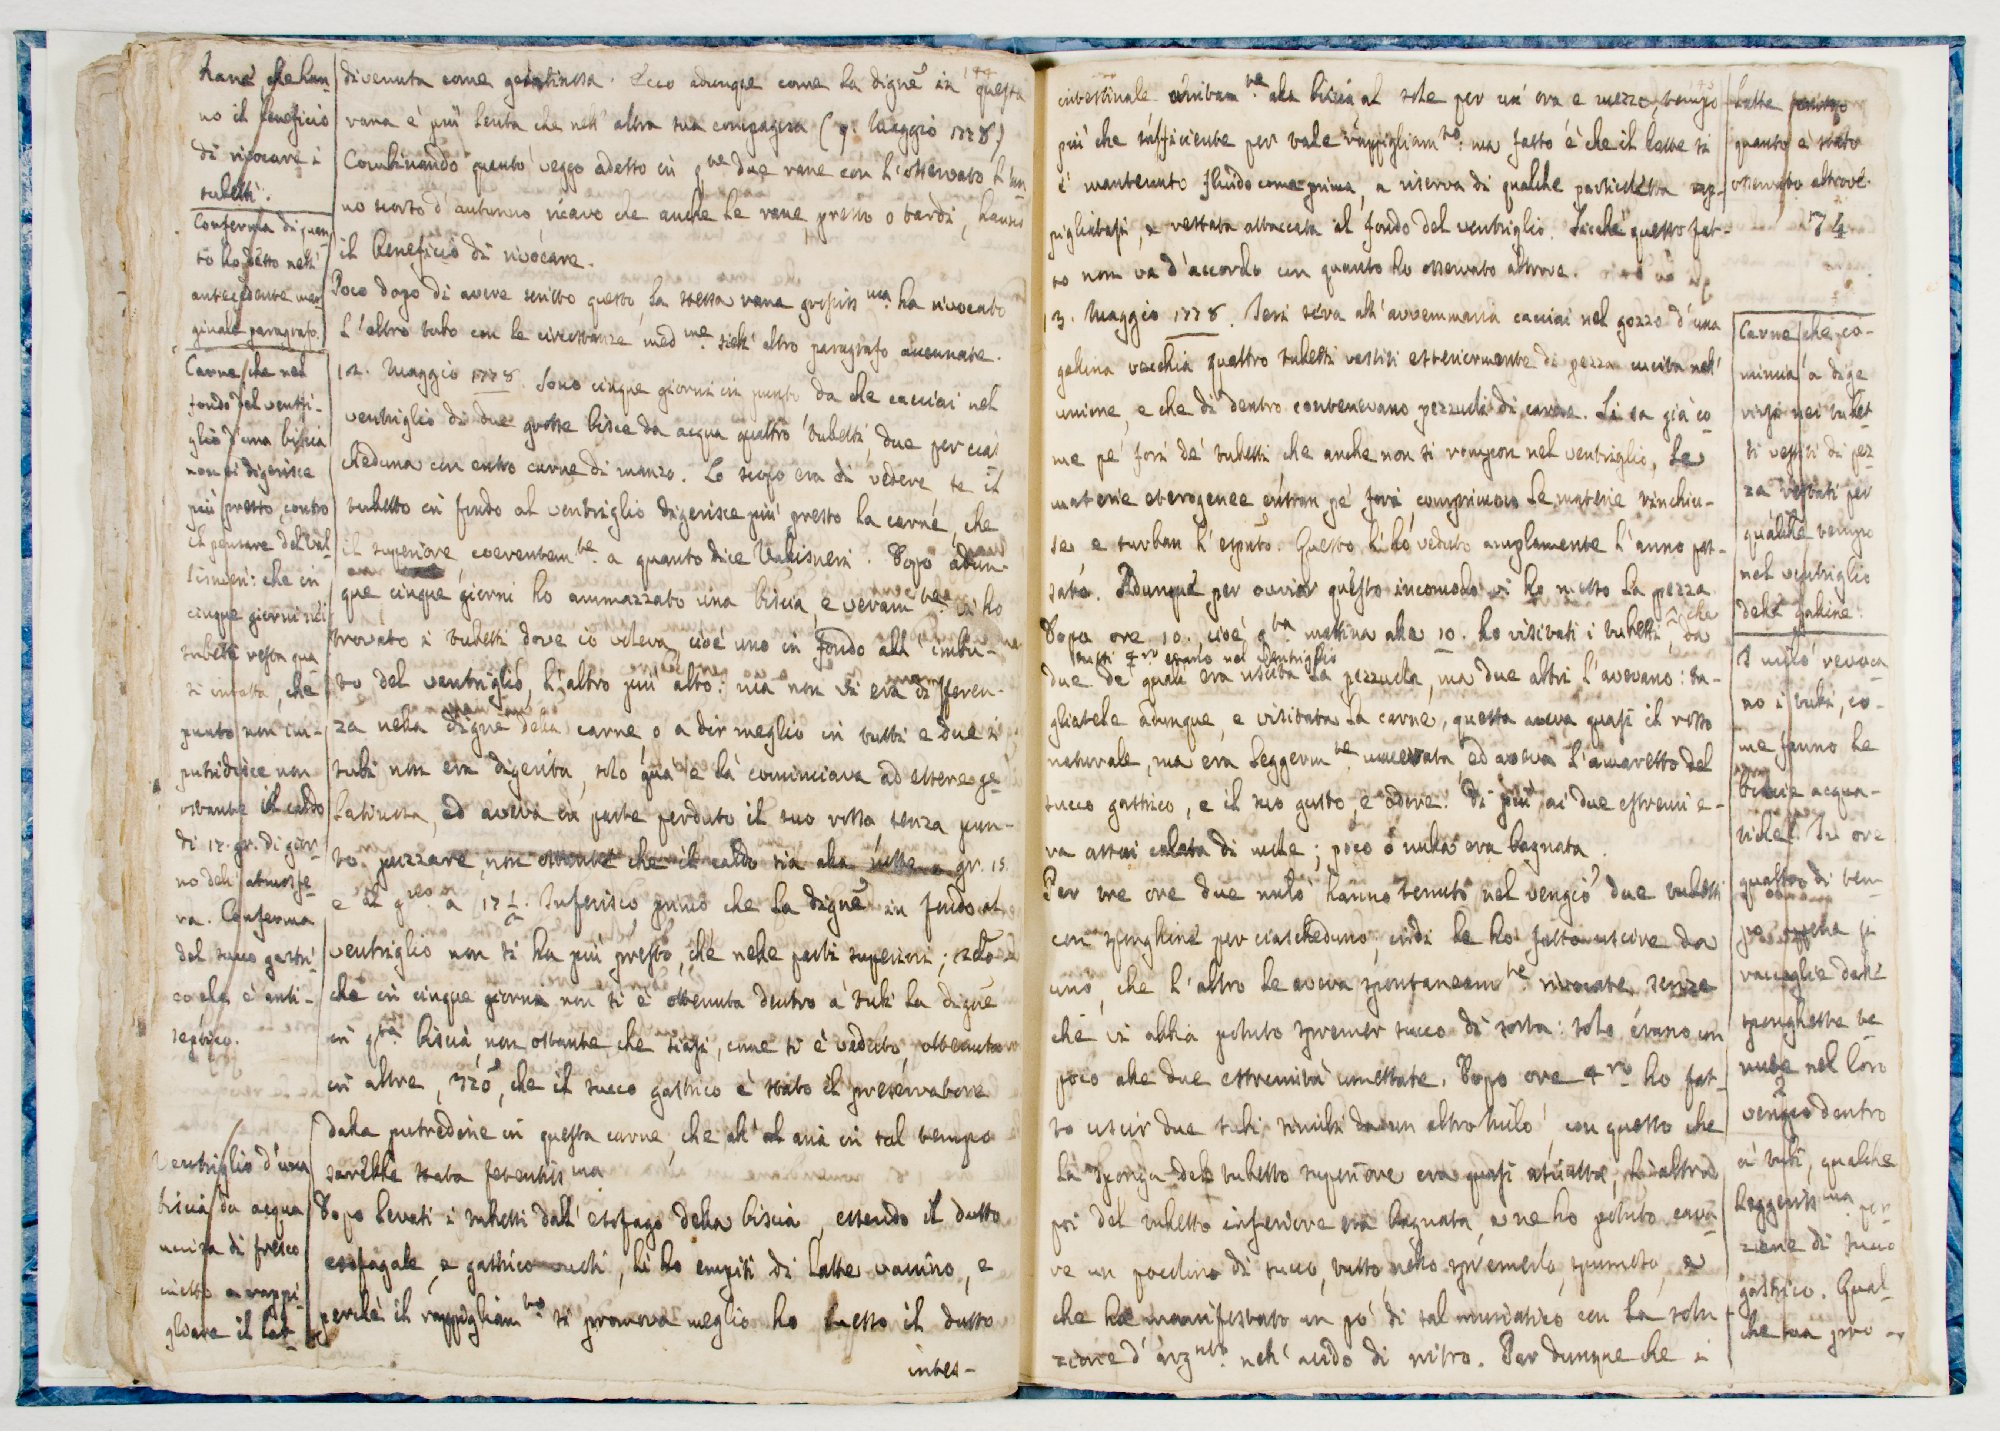 Rane, che han-
no il beneficio
di rivocare i
tubetti.
Conferma di quan-
to ho detto nell'
antecedente mar-
ginale paragrafo.
Carne che nel
fondo del ventri-
glio d'una biscia
non si digerisce
più presto, contro
il pensare del Val-
lisnieri: che in
cinque giorni nei
tubetti resta qua-
si intatta, che
punto non im-
putridisce non
ostante il caldo
di 17. gr. di gior-
no dell'atmosfe-
ra. Conferma
del succo gastri-
co che è anti-
septico.
Ventriglio d'una
biscia da acqua
uccisa di fresco
inetto a rappi-
gliare il lat-
divenuta come gelatinosa. Ecco adunque come la digne in questa
rana è più lenta che nell'altra sua compagna (9. Maggio 1778)
Combinando quanto veggo adesso in qte due rane con l'osservato l'an-
no scorso d'autunno, ricavo che anche le rane, presto o tardi, hanno
il beneficio di rivocare.
Poco dopo di avere scritto questo, la stessa rana grossissma ha rivocato
l'altro tubo con le circostanze medme nell'altro paragrafo accennate.
12. Maggio 1778. Sono cinque giorni in punto da che cacciai nel
ventriglio di due grosse bisce da acqua quattro tubetti, due per cia-
cheduna con entro carne di manzo. Lo scopo era di vedere se il
tubetto in fondo al ventriglio digerisce più presto la carne, che
il superiore, coerentemte a quanto dice Vallisneri. Dopo adun-
que cinque giorni ho ammazzato una biscia, e veramte vi ho
trovato i tubetti dove io voleva, cioè uno in fondo all'imbu-
to del ventriglio, l'altro più alto: ma non vi era differen-
za nella digne della carne, o a dir meglio in tutti e due i
tubi non era digerita, solo quà e là cominciava ad essere ge-
latinosa, ed aveva in parte perduto il suo rosso, senza pun-
to puzzare, non ostante che il caldo sia alla notte a gr. 15.
e al giorno a 17 1/2. Inferisco primo che la digne in fondo al
ventriglio non si ha più presto, che nelle parti superiori; 2do
che in cinque giorni non si è ottenuta dentro a' tubi la digne
in qta biscia non ostante che siasi, come si è veduto, ottenuta
in altre, 3zo, che il succo gastrico è stato il preservatore
dalla putredine in questa carne, che all'aria in tal tempo
sarebbe stata fetentissma
Dopo levati i tubetti dall'esofago della biscia, essendo il dutto
esofagale, e gastrico vuoti, li ho empiti di latte vaccino, e
perchè il rappigliamto si promova meglio ho messo il dutto
intes-
intestinale unitamte alla biscia al sole per un'ora e mezzo, tempo
più che sufficiente per tale rappigliamto: ma fatto è che il latte si
è mantenuto fluido come prima, a riserva di qualche particeletta rap-
pigliatasi, e restata attaccata al fondo del ventriglio. Sicchè questo fat-
to non va d'accordo con quanto ho osservato altrove.
13. Maggio 1778. Ieri sera all'avemmaria cacciai nel gozzo d'una
gallina vecchia quattro tubetti vestiti esteriormente di pezza cucita nell'
unione, e che di dentro contenevano pezzuoli di carne. Si sa già co-
me pe' fori de' tubetti, che anche non si rompon nel ventriglio, le
materie eterogenee entran pe' fori, comprimono le materie rinchiu-
se, e turban l'esperto. Questo l'ho veduto ampiamente l'anno pas-
sato. Adunque per ovviar questo incomodo vi ho messo la pezza.
Dopo ore 10., cioè qta mattina alle 10. ho visitati i tubetti, che
tutti 4ro erano nel ventriglio
due de' quali era uscita la pezzuola, ma due altri l'avevano: ta-
gliatele adunque, e visitata la carne, questa aveva quasi il rosso
naturale, ma era leggermte macerata ed aveva l'amaretto del
succo gastrico, e il suo gusto, e odore. Di più ai due estremi e-
ra assai calata di mole; poco o nulla era bagnata.
Per tre ore due nilò hanno tenuto nel vengiò due tubetti
con spunghine per ciascheduno, indi le ho fatto uscire da
uno, che l'altro le aveva spontaneamte rivocate, senza
che vi abbia potuto spremer succo di sorta: solo erano un
poco alle due estremità umettate. Dopo ore 4ro ho fat-
to uscir due tubi simili da un altro nilò, con questo che
la sponga del tubetto superiore era quasi asciutta, l'altra
poi del tubetto inferiore era bagnata, e ne ho potuto cava-
re un pocolino di succo, tutto nello spremerlo, spumoso, e
che ha manifestato un pò di sal muriatico con la solu-
zione d'argnto nell'acido di nitro. Par dunque che i
latte
quanto è stato
osservato altrove.
74
Carne che co-
mincia a dige-
rirsi nei tubet-
ti vestiti di pez-
za restati per
qualche tempo
nel ventriglio
delle galline.
I nilò rivoca-
no i tubi, co-
me fanno le
biscie acqua-
tiche. In ore
quattro di tem-
po appena si
raccoglie dalle
spunghette te-
nute nel loro
vengiò dentro
ai tubi, qualche
leggerissma por-
zione di succo
gastrico. Qual-
che sua pro-